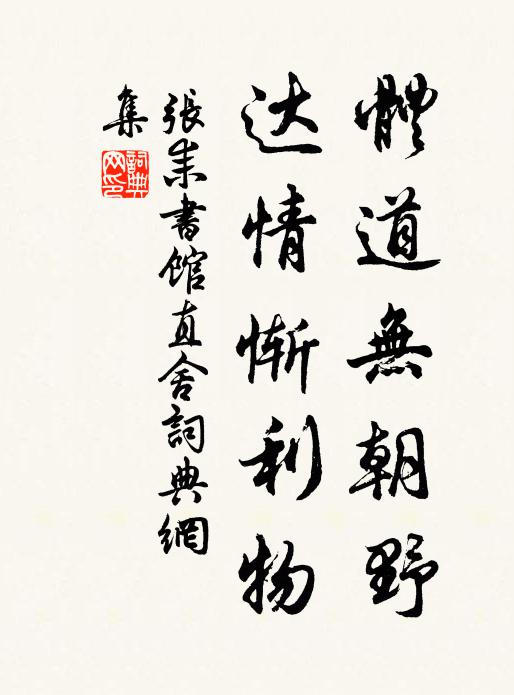 體道無朝野
达情惭利物
張耒書館直舍詞典網
集
詞典网印